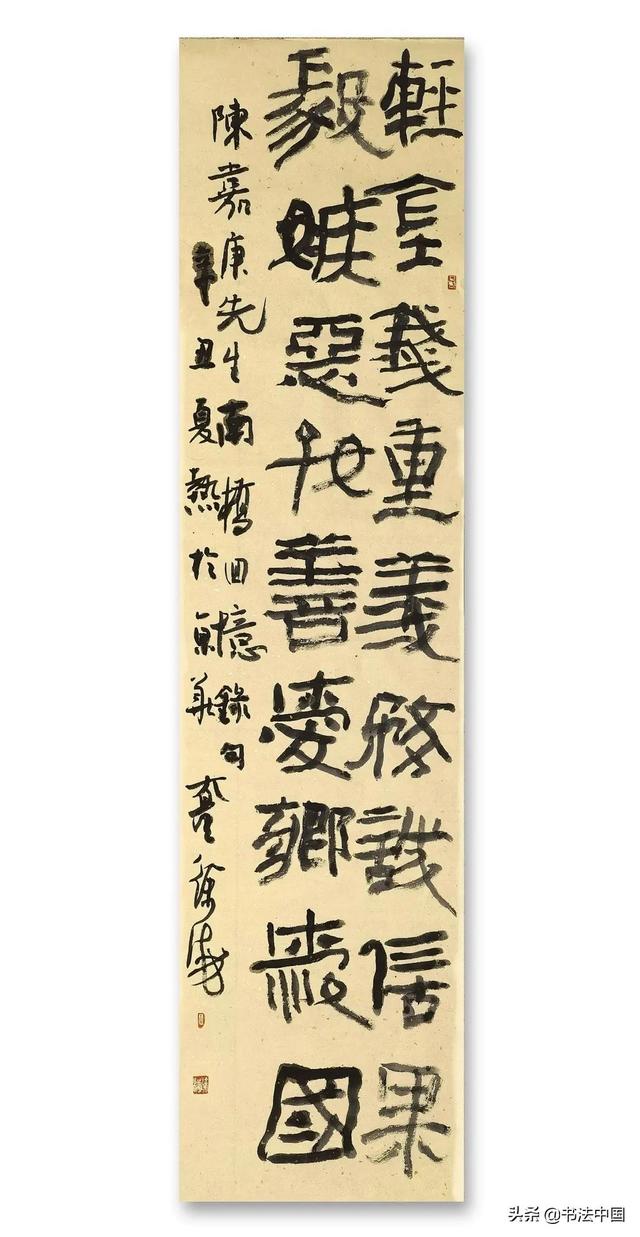 輕金錢重義務誠信果
毅嫉惡好善愛鄉愛國
陳嘉庚先生南橋回憶錄句
辛丑夏熱於京華徐海
头条 @书法中国